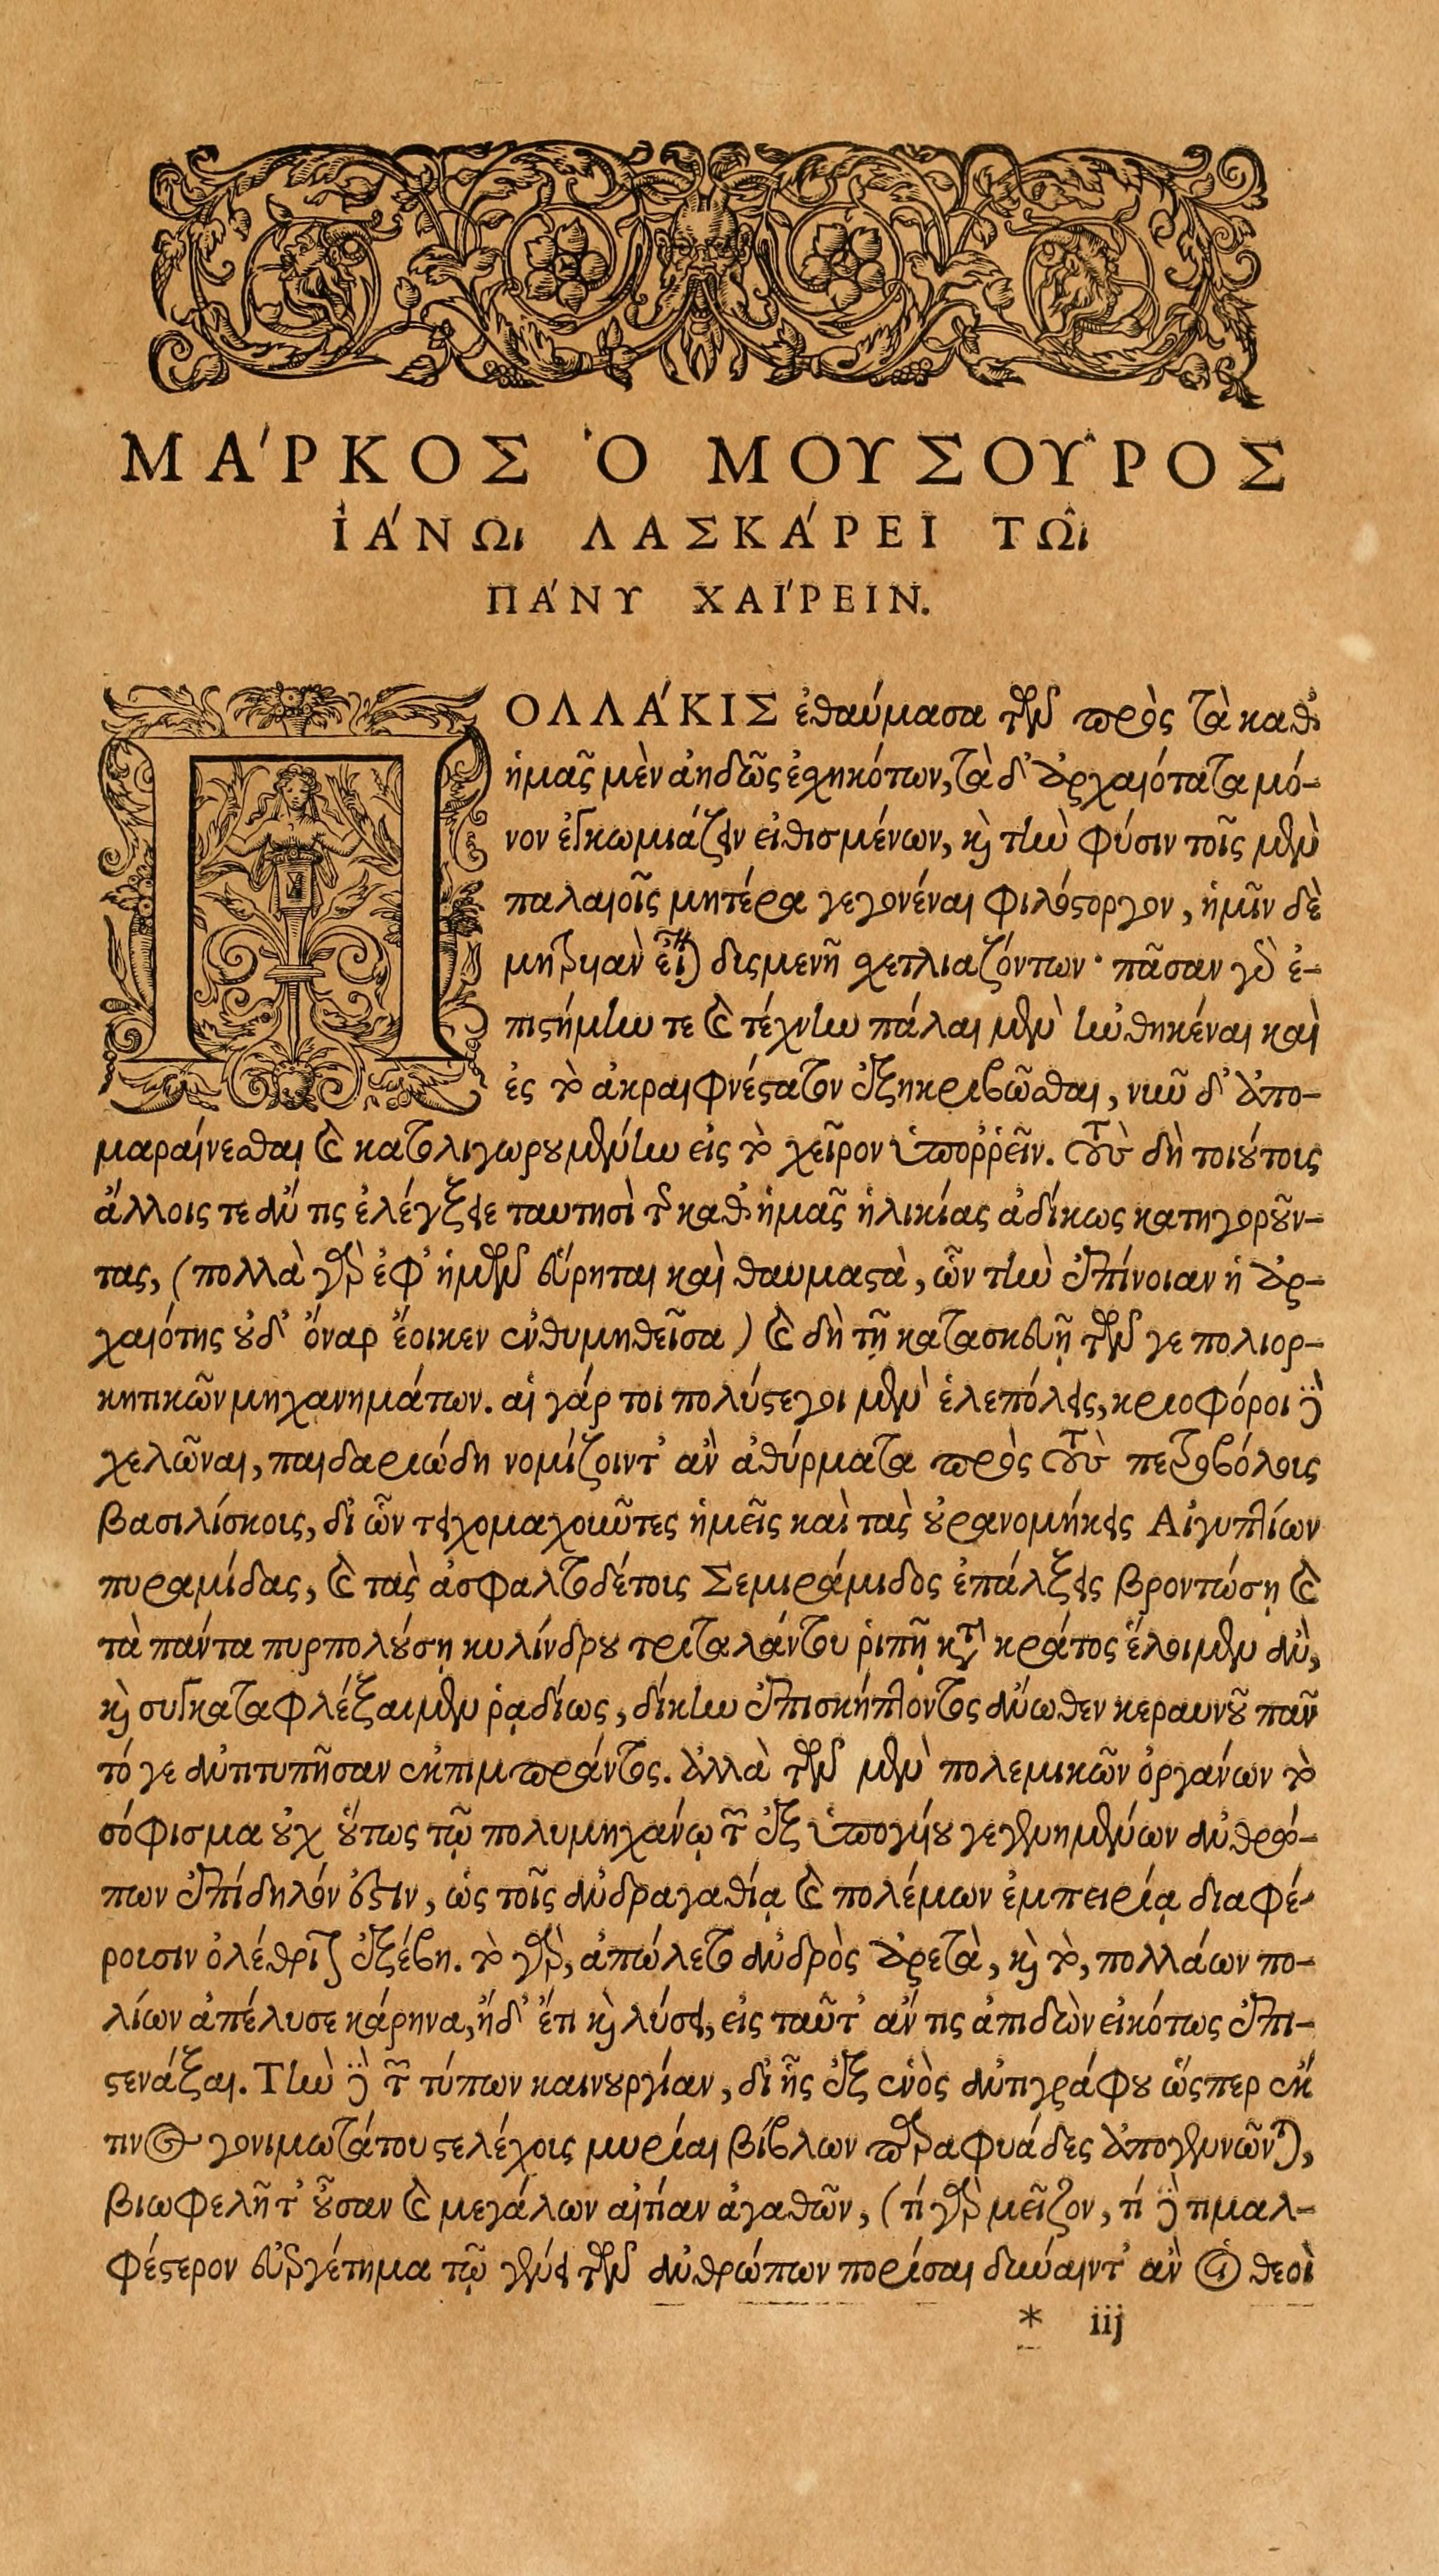 ΜΑΡΚΟΣ Ὁ ΜΟΥΣΟΥΡΟΣ
ἸΑΝΩι ΛΑΣΚΑΡΕΙ ΤΩι
ΠΑΝΥ ΧΑΙΡΕΙΝ.
ΠΟΛΛΑΚΙΣ ἐθαύμασα τῶν πρὸς τὰ καθ᾽
ἡμᾶς μὲν ἀηδῶς ἐσχηκότων, τὰ δ᾽ ἀρχαιότατα μό-
νον ἐγκωμιάζειν εἰθισμένων, καὶ τὴν φύσιν τοῖς μὲν
παλαιοῖς μητέρα γεγονέναι φιλόστοργον, ἡμῖν δὲ
μητρυιὰν εἶναι δυσμενῆ σχετλιαζόντων· πᾶσαν γὰρ ἐ-
πιστήμην τε καὶ τέχνην πάλαι μὲν ηὐθηκέναι καὶ
ἐς τὸ ἀκραιφνέστατον ἐξηκριβῶσθαι, νῦν δ᾽ ἀπο-
μαραίνεσθαι καὶ κατολιγωρουμένην εἰς τὸ χεῖρον ὑποῤῥεῖν. τοὺς δὴ τοιούτοις
ἄλλοις τε ἄν τις ἐλέγξειε ταυτησὶ τῆς καθ᾽ ἡμᾶς ἡλικίας ἀδίκως κατηγοροῦν-
τας, (πολλὰ γὰρ ἐφ᾽ ἡμῶν εὕρηται καὶ θαυμαστὰ, ὧν τὴν ἐπίνοιαν ἡ ἀρ-
χαιότης οὐδ᾽ ὄναρ ἔοικεν ἐνθυμηθεῖσα) καὶ δὴ τῇ κατασκευῇ τῶν γε πολιορ-
κητικῶν μηχανημάτων. αἱ γάρ τοι πολύστεγοι μὲν ἑλεπόλεις, κριοφόροι δὲ
χελῶναι, παιδαριώδη νομίζοιντ᾽ ἂν ἀθύρματα πρὸς τοὺς πετροβόλοις
βασιλίσκοις, δι᾽ ὧν τειχομαχοῦντες ἡμεῖς καὶ τὰς οὐρανομήκεις Αἰγυπτίων
πυραμίδας, καὶ τὰς ἀσφαλτοδέτοις Σεμιράμιδος ἐπάλξεις βροντώσῃ καὶ
τὰ πάντα πυρπολούσῃ κυλίνδρου τριταλάντου ῥιπῇ κατὰ κράτος ἕλοιμεν ἄν,
καὶ συγκαταφλέξαιμεν ῥᾳδίως, δίκην ἐπισκήπτοντος ἄνωθεν κεραυνοῦ πᾶν
τό γε ἀντιτυπῆσαν ἐκπιμπράντος. ἀλλὰ τῶν μὲν πολεμικῶν ὀργάνων τὸ
σόφισμα οὐχ οὕτως τῷ πολυμηχάνῳ τῶν ἐξ ὑπογύου γεγενημένων ἀνθρώ-
πων ἐπίδηλόν ἐστιν, ὡς τοῖς ἀνδραγαθίᾳ καὶ πολέμων ἐμπειρίᾳ διαφέ-
ρουσιν ὀλέθριον ἐξέβη. τὸ γὰρ, ἀπώλετο ἀνδρὸς ἀρετὰ, καὶ τὸ, πολλάων πο-
λίων ἀπέλυσε κάρηνα, ἠδ᾽ ἔτι καὶ λύσει, εἰς ταῦτ᾽ ἄν τις ἀπιδὼν εἰκότως ἐπι-
στενάξαι. Τὴν δὲ τῶν τύπων καινουργίαν, δι᾽ ἧς ἐξ ἑνὸς ἀντιγράφου ὥσπερ ἐκ
τινος γονιμωτάτου στελέχοις μυρίαι βίβλων παραφυάδες ἀπογεννῶνται,
βιωφελῆ τ᾽ οὖσαν καὶ μεγάλων αἰτίαν ἀγαθῶν, (τί γὰρ μεῖζον, τί δὲ τιμαλ-
φέστερον εὐεργέτημα τῷ γένει τῶν ἀνθρώπων πορίσαι δύναιντ᾽ ἂν οἱ θεοὶ
* iij